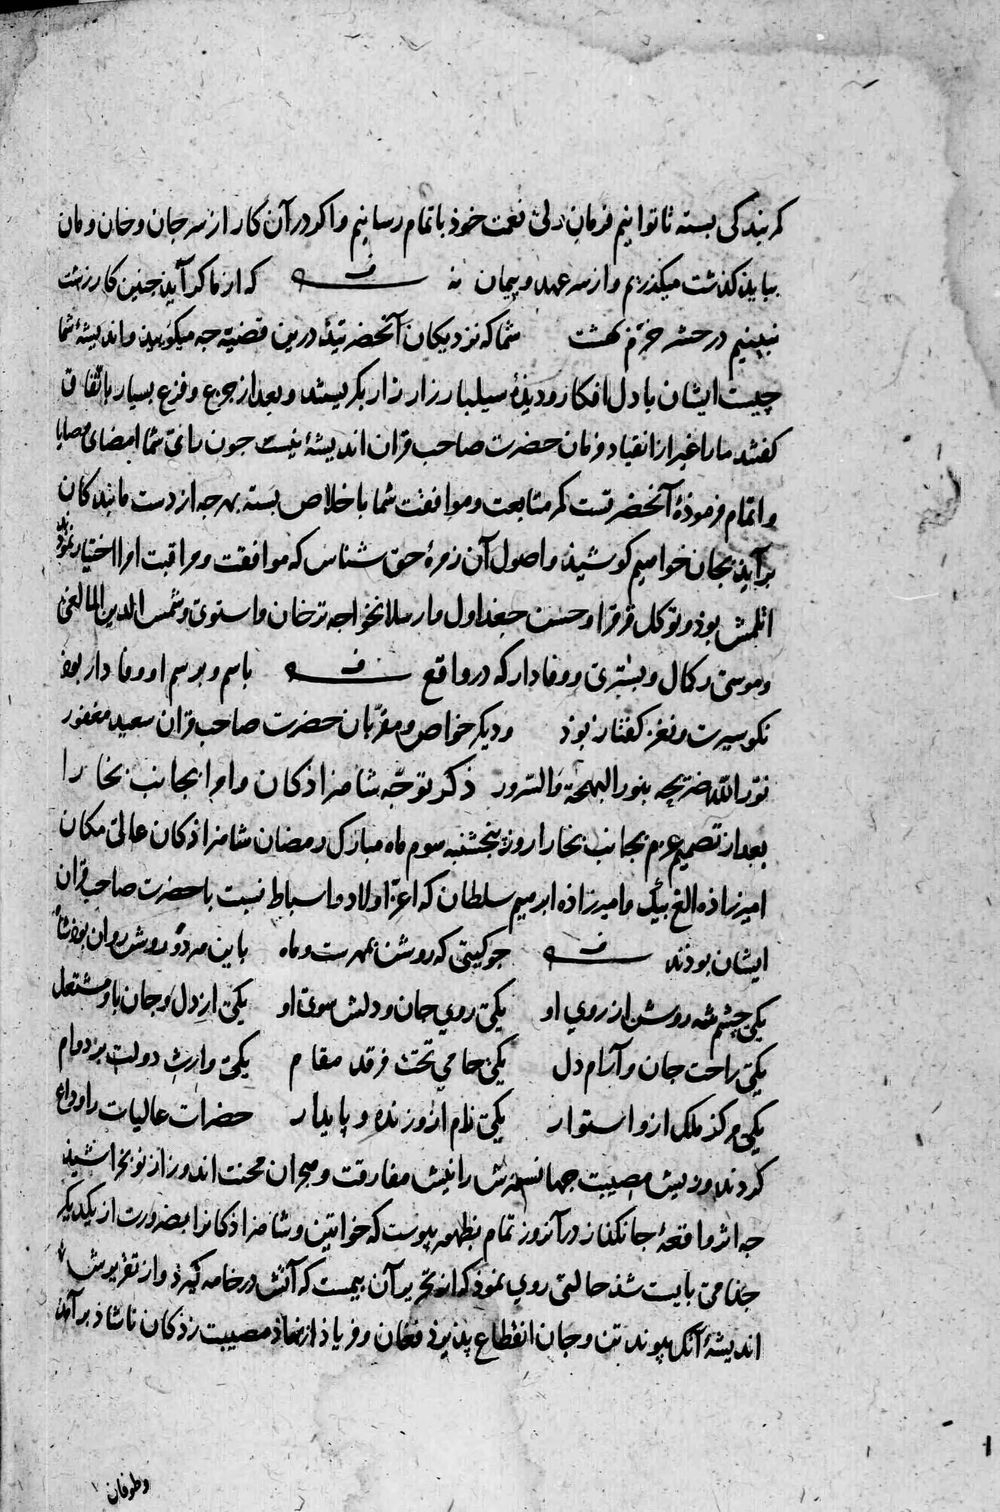 کمر بندگی بسته تا توانیم فرمان ولی نعمت خوذ باتمام رسانیم و اکر در آن کار از سر جان و خان و مان
بباید کذشت میکذریم و از سر عهد و پیمان نه ف که از ما کر آید چنین کار زشت
نبینیم در حشر خرّم بهشت شما که نزدیکان آنحضرتید درین قضیّه چه میکویید و اندیشهٔ شما
چیست ایشان با دل افکار و دیذهٔ سیلبار زار زار بکریستند و بعد از جزع و فزع بسیار باتّفاق
کفتند ما را غیر از انقیاد فرمان حضرت صاحب قران اندیشهٔ نیست جون رای شما امضای وصایا
و اتمام فرموذهٔ آنحضرتست کمر متابعت و موافقت شما باخلاص بسته بهر جه از دست ما بندکان
برآید بجان خواهیم کوشیذ و اصول آن زمرهٔ حق شناس که موافقت و مراقبت امرا اختیار نموذند
اتلمش بوذ و توکل قرقرا و حسن جغداول و ارسلانخواجه ترخان و استوی و شمس الدین المالیغی
و موسی رکمال و بیتری و وفادار که در واقع ف باسم و برسم او وفادار بوذ
نکو سیرت و نغز کفتار بوذ و دیکر خواص و مقرّبان حضرت صاحب قران سعید مغفور
نوّر الله ضریحه بنور البهجة و السّرور ذکر توجّه شاهزاذکان و امرا بجانب بخارا
بعد از تصمیم عزم بجانب بخارا روز پنجشنبه سوم ماه مبارک رمضان شاهزاذکان عالی مکان
امیرزاذه الغ بیک و امیرزاذه ابرهیم سلطان که اعزّ اولاد و اسباط نسبت با حضرت صاحب قران
ایشان بوذند ف جو کیتی که روشن بمهرست و ماه باین هر دو روشن روان بوذ شاه
یکی چشم شه روشن از روی او یکی روی جان و دلش سوی او یکی از دل و جان باو مشتعل
یکی راحت جان و آرام دل یکی حامی تخت فرقد مقام یکی وارث دولت بردوام
یکی مرکز ملک ازو استوار یکی نام ازو زنده و پایدار حضرات عالیات را وداع
کردند و ریش مصیبت جهانسوزش را نیش مفارقت و هجران محنت اندوز از نو بخراشید
جه اثر واقعهٔ جانکداز در آنروز تمام بظهور پیوست که خواتین و شاهزاذکانرا بضرورت از یکدیکر
جدا می بایست شذ حالتی روی نموذ که از تحریر آن بیمست که آتش در خامه کیرذ و از تقریرش
اندیشهٔ آنک پیوند تن و جان انقطاع پذیرذ فغان و فریاد از نهاذ مصیبت زذکان ناشاذ برآمد
وطوفان